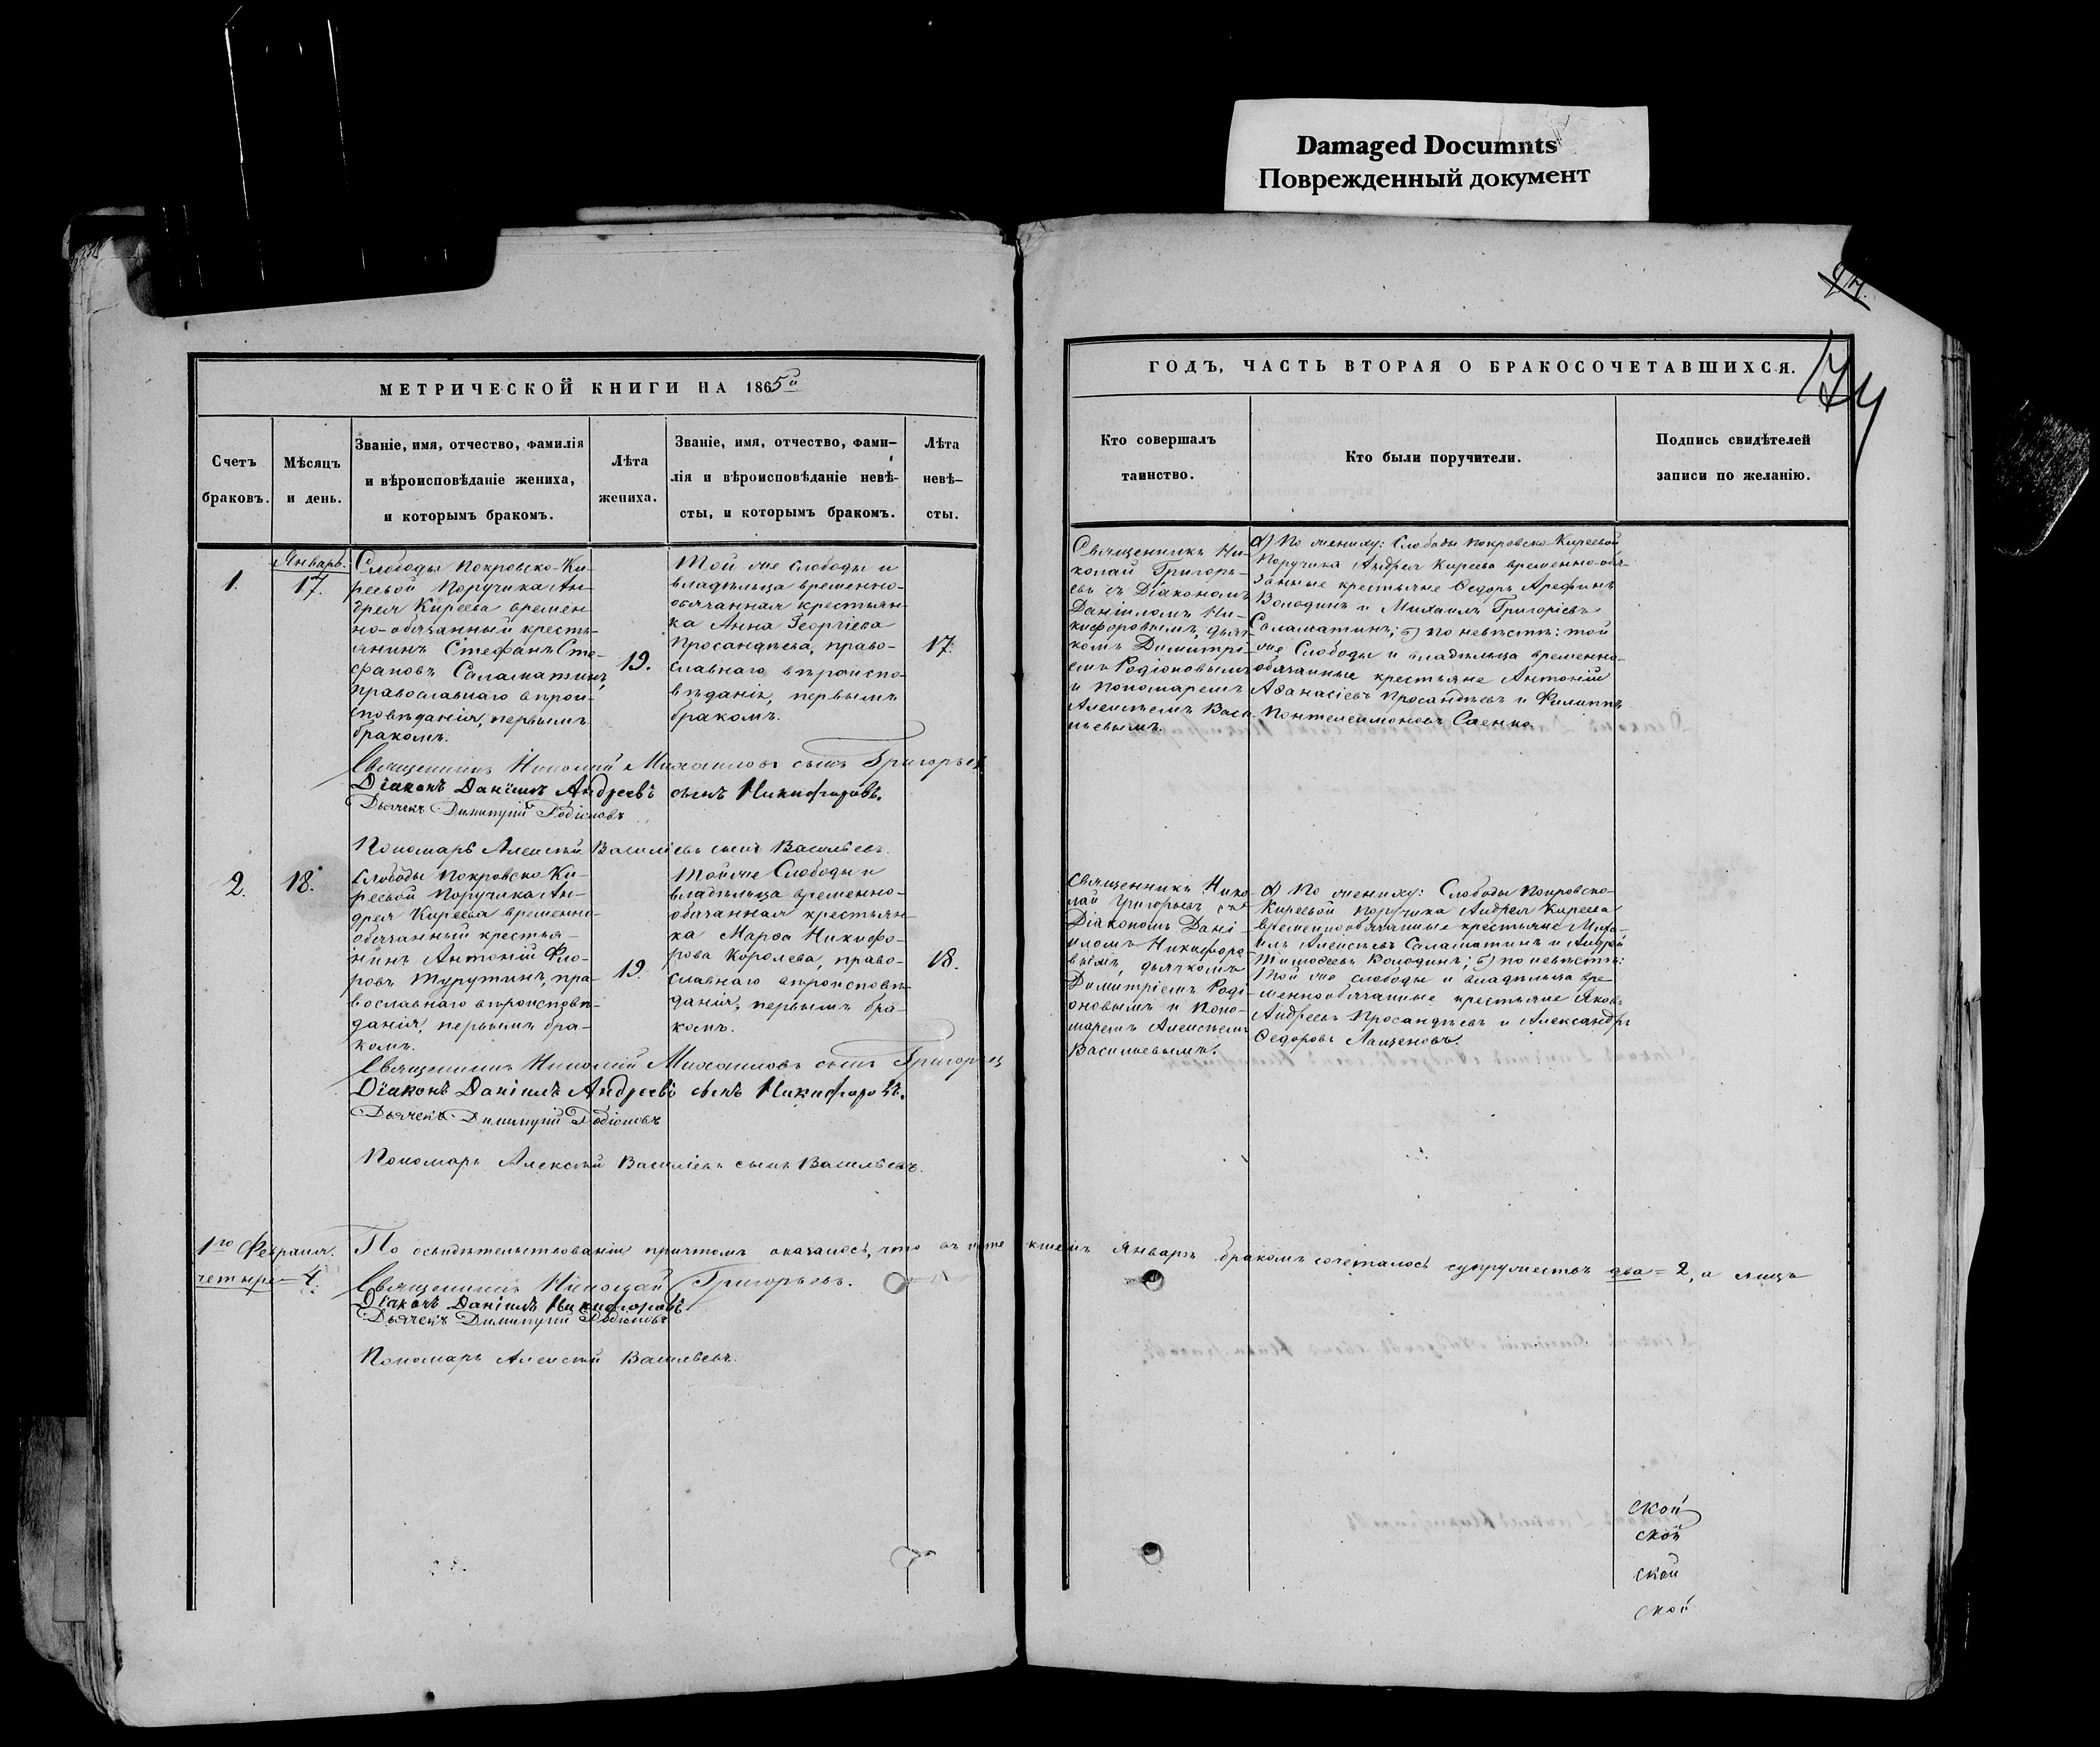 Damaged Documnts
Поврежденный документ
МЕТРИЧЕСКОЙ КНИГИ НА 1865й
Счетъ
браковъ.
Мѣсяцъ
и день.
Званіе, имя, отчество, фамилія
и вѣроисповѣданіе жениха,
и которымъ бракомъ.
Лѣта
жениха.
Званіе, имя, отчество, фами-
лія и вѣроисповѣданіе невѣ-
сты, и которымъ бракомъ.
Лѣта
невѣ-
сты.
1.
Январь.
17.
Слободы Покровско-Ки-
реевой Поручика Ан-
дрея Киреева времен
но-обязанный кресть-
янинъ Стефанъ Сте-
фановъ Саламатинъ,
православнаго вѣрои-
сповѣданія, первымъ
бракомъ.
19.
Той же слободы и
владѣльца временно-
обязанная крестьян-
ка Анна Георгіева
Просандѣева, право-
славнаго вѣроиспо-
вѣданія, первымъ
бракомъ.
17.
Священникъ Николай Михаиловъ сынъ Григорьев
Діаконъ Даніилъ Андреевъ сынъ Никифоровъ.
Дьячекъ Димитрій Родіоновъ
Пономарь Алексѣй Василіевъ сынъ Васильевъ.
2.
18.
Слободы Покровско Ки-
реевой Поручика Ан-
дрея Киреева временно-
обязанный крестья-
нинъ Антоній Фло-
ровъ Турутинъ, пра-
вославнаго вѣроисповѣ-
данія, первымъ бра-
комъ.
19.
Той же Слободы и
владѣльца временно-
обязанная крестьян-
ка Марѳа Никифо-
рова Королева, право-
славнаго вѣроисповѣ-
данія, первымъ бра-
комъ.
18.
Священникъ Николай Михаиловъ сынъ Григорьев
Діаконъ Даніилъ Андреевъ сынъ Никифоровъ.
Дьячекъ Димитрій Родіоновъ
Пономарь Алексѣй Василіевъ сынъ Васильевъ.
1го Февраля. По освидѣтельствованіи причтомъ оказалось, что въ исте кшемъ Январѣ бракомъ сочеталось супружествъ два = 2, а лицъ
четыре = 4.
Священникъ Николай Григорьевъ.
Діаконъ Даніилъ Никифоровъ
Дьячекъ Димитрій Родіоновъ
Пономарь Алексѣй Васильевъ.
ГОДЪ, ЧАСТЬ ВТОРАЯ О БРАКОСОЧЕТАВШИХСЯ.
174
Кто совершалъ
таинство.
Кто были поручители.
Подпись свидѣтелей
записи по желанію.
Священникъ Ни-
колай Григорь-
евъ съ Діакономъ
Даніиломъ Ни-
кифоровымъ, дьяч-
комъ Димитрі-
емъ Родіоновымъ
и Пономаремъ
Алексѣемъ Васи-
льевымъ.
а) По жениху: Слободы Покровско-Киреевой
Поручика Андрея Киреева временно-обя-
занные крестьяне Ѳедоръ Арефинъ
Володинъ и Михаилъ Григоріевъ
Саламатинъ; б) по невѣстѣ: той
же Слободы и владѣльца временно-
обязанные крестьяне Антоній
Аѳанасіевъ Просандѣевъ и Филиппъ
Понтелеимоновъ Саенко.
Священникъ Нико-
лай Григорьевъ съ
Діакономъ Дані-
иломъ Никифоро-
вымъ, дьячкомъ
Димитріемъ Роді-
оновымъ и Поно-
маремъ Алексѣемъ
Васильевымъ.
а) По жениху: Слободы Покровско-
Киреевой Поручика Андрея Киреева
временнообязанные крестьяне Миха-
илъ Алексѣевъ Саламатинъ и Андрей
Тимоѳеевъ Володинъ; б) по невѣстѣ:
Той же слободы и владѣльца вре-
меннообязанные крестьяне Яковъ
Андреевъ Просандѣевъ и Александръ
Ѳедоровъ Лащеновъ.
ской
ской
ской
ской